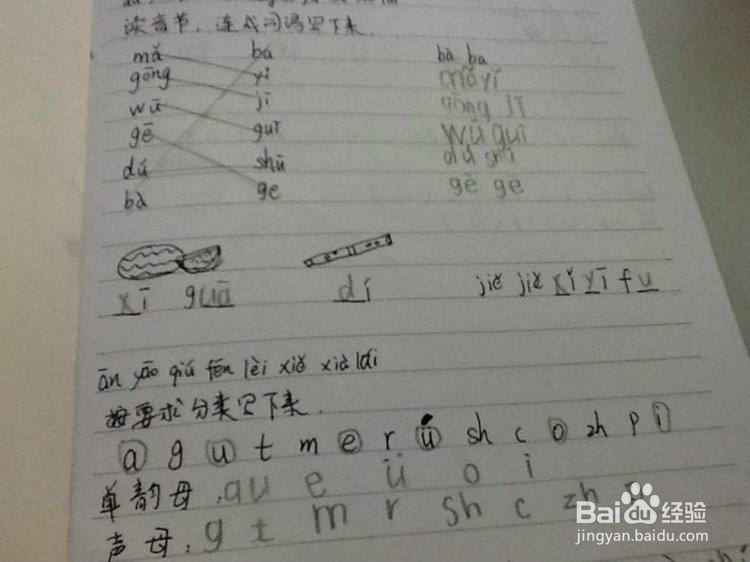 读音节,连成词语写下来.
mǎ bá bà ba
gōng yǐ mǎ yǐ
wū jī gōng jī
gē guī wū guī
dú shū dú shū
bà ge gē ge
xī guā dí jiě jiě xǐ yī fu
ān yāo qiú fēn lèi xiě xià lái
按要求分类写下来.
a g u t m e r ü sh c o zh p i
单韵母:a u e ü o i
声母:g t m r sh c zh p
Baidu经验
jingyan.baidu.com